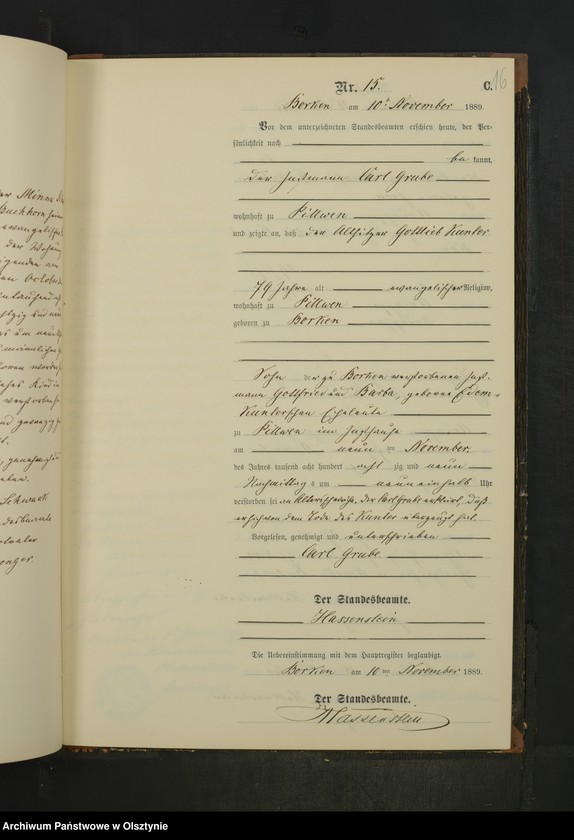 Nr. 15.
C.
16
Borken am 10t November 1889.
Vor dem unterzeichneten Standesbeamten erschien heute, der Per-
sönlichkeit nach
be kannt,
der Instmann Carl Grube
wohnhaft zu Pillwen
und zeigte an, daß der Altsitzer Gottlieb Kantor
79 Jahre alt evangelischer Religion,
wohnhaft zu Pillwen
geboren zu Borken
Sohn der zu Borken verstorbenen Inst-
mann Gottfried und Barba, geborne
Kantorschen Eheleute
zu Pillwen im Insthause
am neun ten November
des Jahres tausend acht hundert acht zig und neun
Nachmittags um neun einhalb Uhr
verstorben sei an Altersschwäche, der Carl Grube erklärt, daß
er sich von dem Tode des Kantor überzeugt hat.
Vorgelesen, genehmigt und unterschrieben
Carl Grube
Der Standesbeamte.
Hassenstein
Die Uebereinstimmung mit dem Hauptregister beglaubigt.
Borken am 10 ten November 1889.
Der Standesbeamte.
Hassenstein
Archiwum Państwowe w Olsztynie